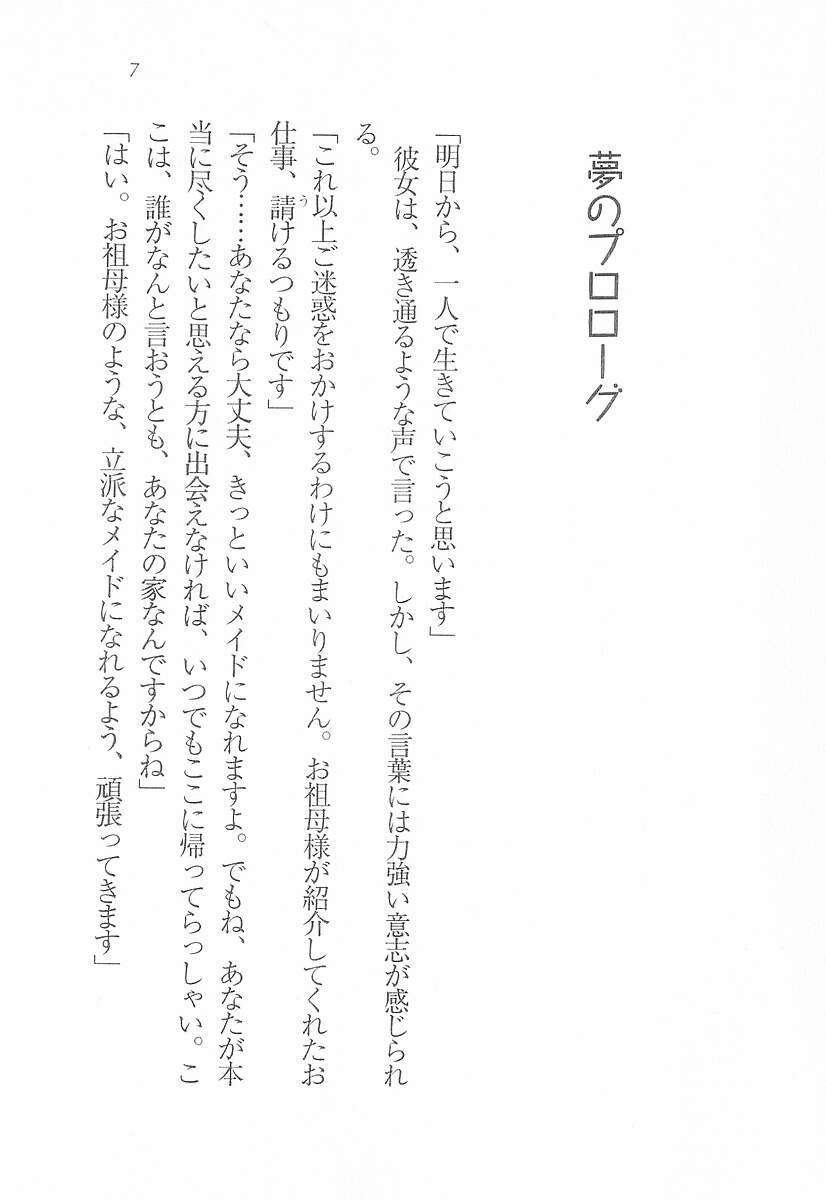 夢のプロローグ
「明日から、一人で生きていこうと思います」
　彼女は、透き通るような声で言った。しかし、その言葉には力強い意志が感じられ
る。
「これ以上ご迷惑をおかけするわけにもまいりません。お祖母様が紹介してくれたお
仕事、請けるつもりです」
う
「そう……あなたなら大丈夫、きっといいメイドになれますよ。でもね、あなたが本
当に尽くしたいと思える方に出会えなければ、いつでもここに帰ってらっしゃい。こ
こは、誰がなんと言おうとも、あなたの家なんですからね」
「はい。お祖母様のような、立派なメイドになれるよう、頑張ってきます」
7